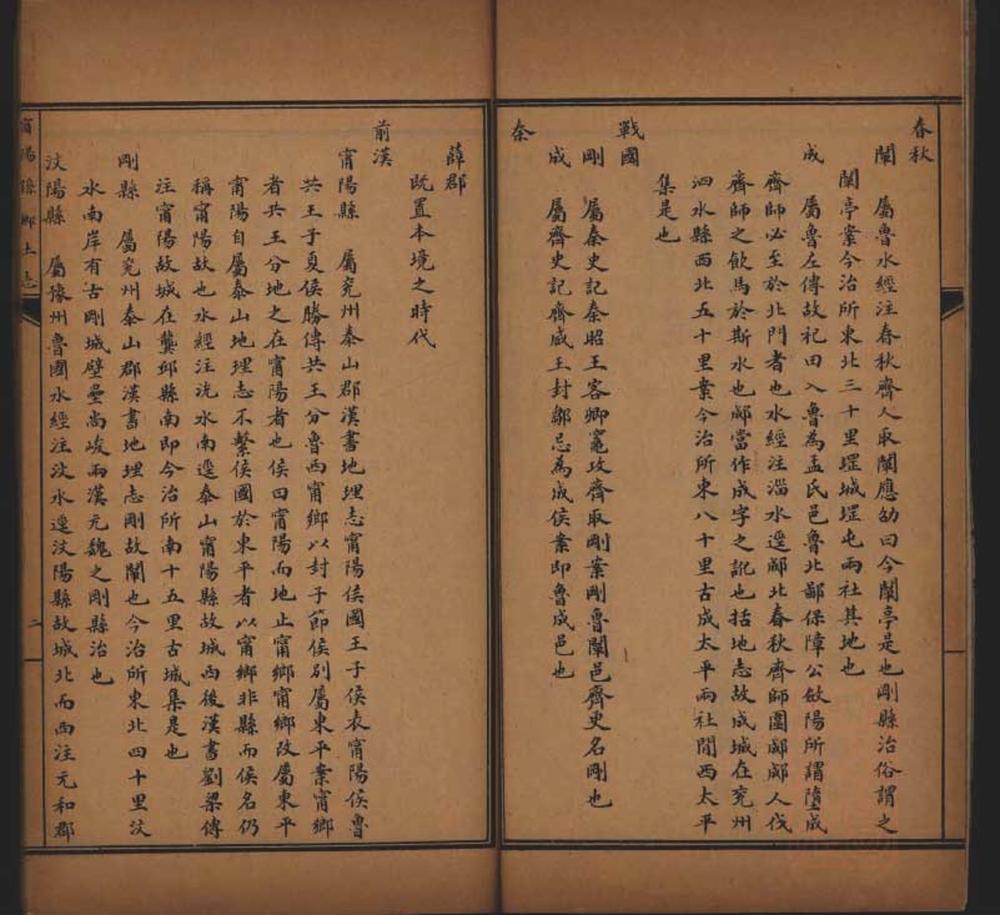 春秋
闡　屬魯水經注春秋齊人取闡應劭曰今闡亭是也剛縣治俗謂之
闡亭案今治所東北三十里堽城堽屯兩社其地也
成　屬魯左傳故祀田入魯為孟氏邑魯北鄙保障公斂陽所謂墮成
齊師必至於北門者也水經注淄水逕郕北春秋齊師圍郕郕人伐
齊師之飲馬於斯水也郕當作成字之訛也括地志故成城在兗州
泗水縣西北五十里案今治所東八十里古成太平兩社間西太平
集是也
戰國
剛　屬秦史記秦昭王客卿竈攻齊取剛案剛魯闡邑齊更名剛也
成　屬齊史記齊威王封鄒忌為成侯案即魯成邑也
秦
薛郡
既置本境之時代
前漢
甯陽縣　屬兗州泰山郡漢書地理志甯陽侯國王子侯表甯陽侯魯
共王子夏侯勝傳共王分魯西甯鄉以封子節侯別屬東平案甯鄉
者共王分地之在甯陽者也侯曰甯陽而地止甯鄉甯鄉改屬東平
甯陽自屬泰山地理志不繫侯國於東平者以甯鄉非縣而侯名仍
稱甯陽故也水經注洸水南逕泰山甯陽縣故城西後漢書劉梁傳
注甯陽故城在龔邱縣南即今治所南十五里古城集是也
剛縣　屬兗州泰山郡漢書地理志剛故闡也今治所東北四十里汶
水南岸有古剛城壁壘尚峻兩漢元魏之剛縣治也
汶陽縣　屬豫州魯國水經注汶水逕汶陽縣故城北而西注元和郡
甯陽縣鄉土志
二